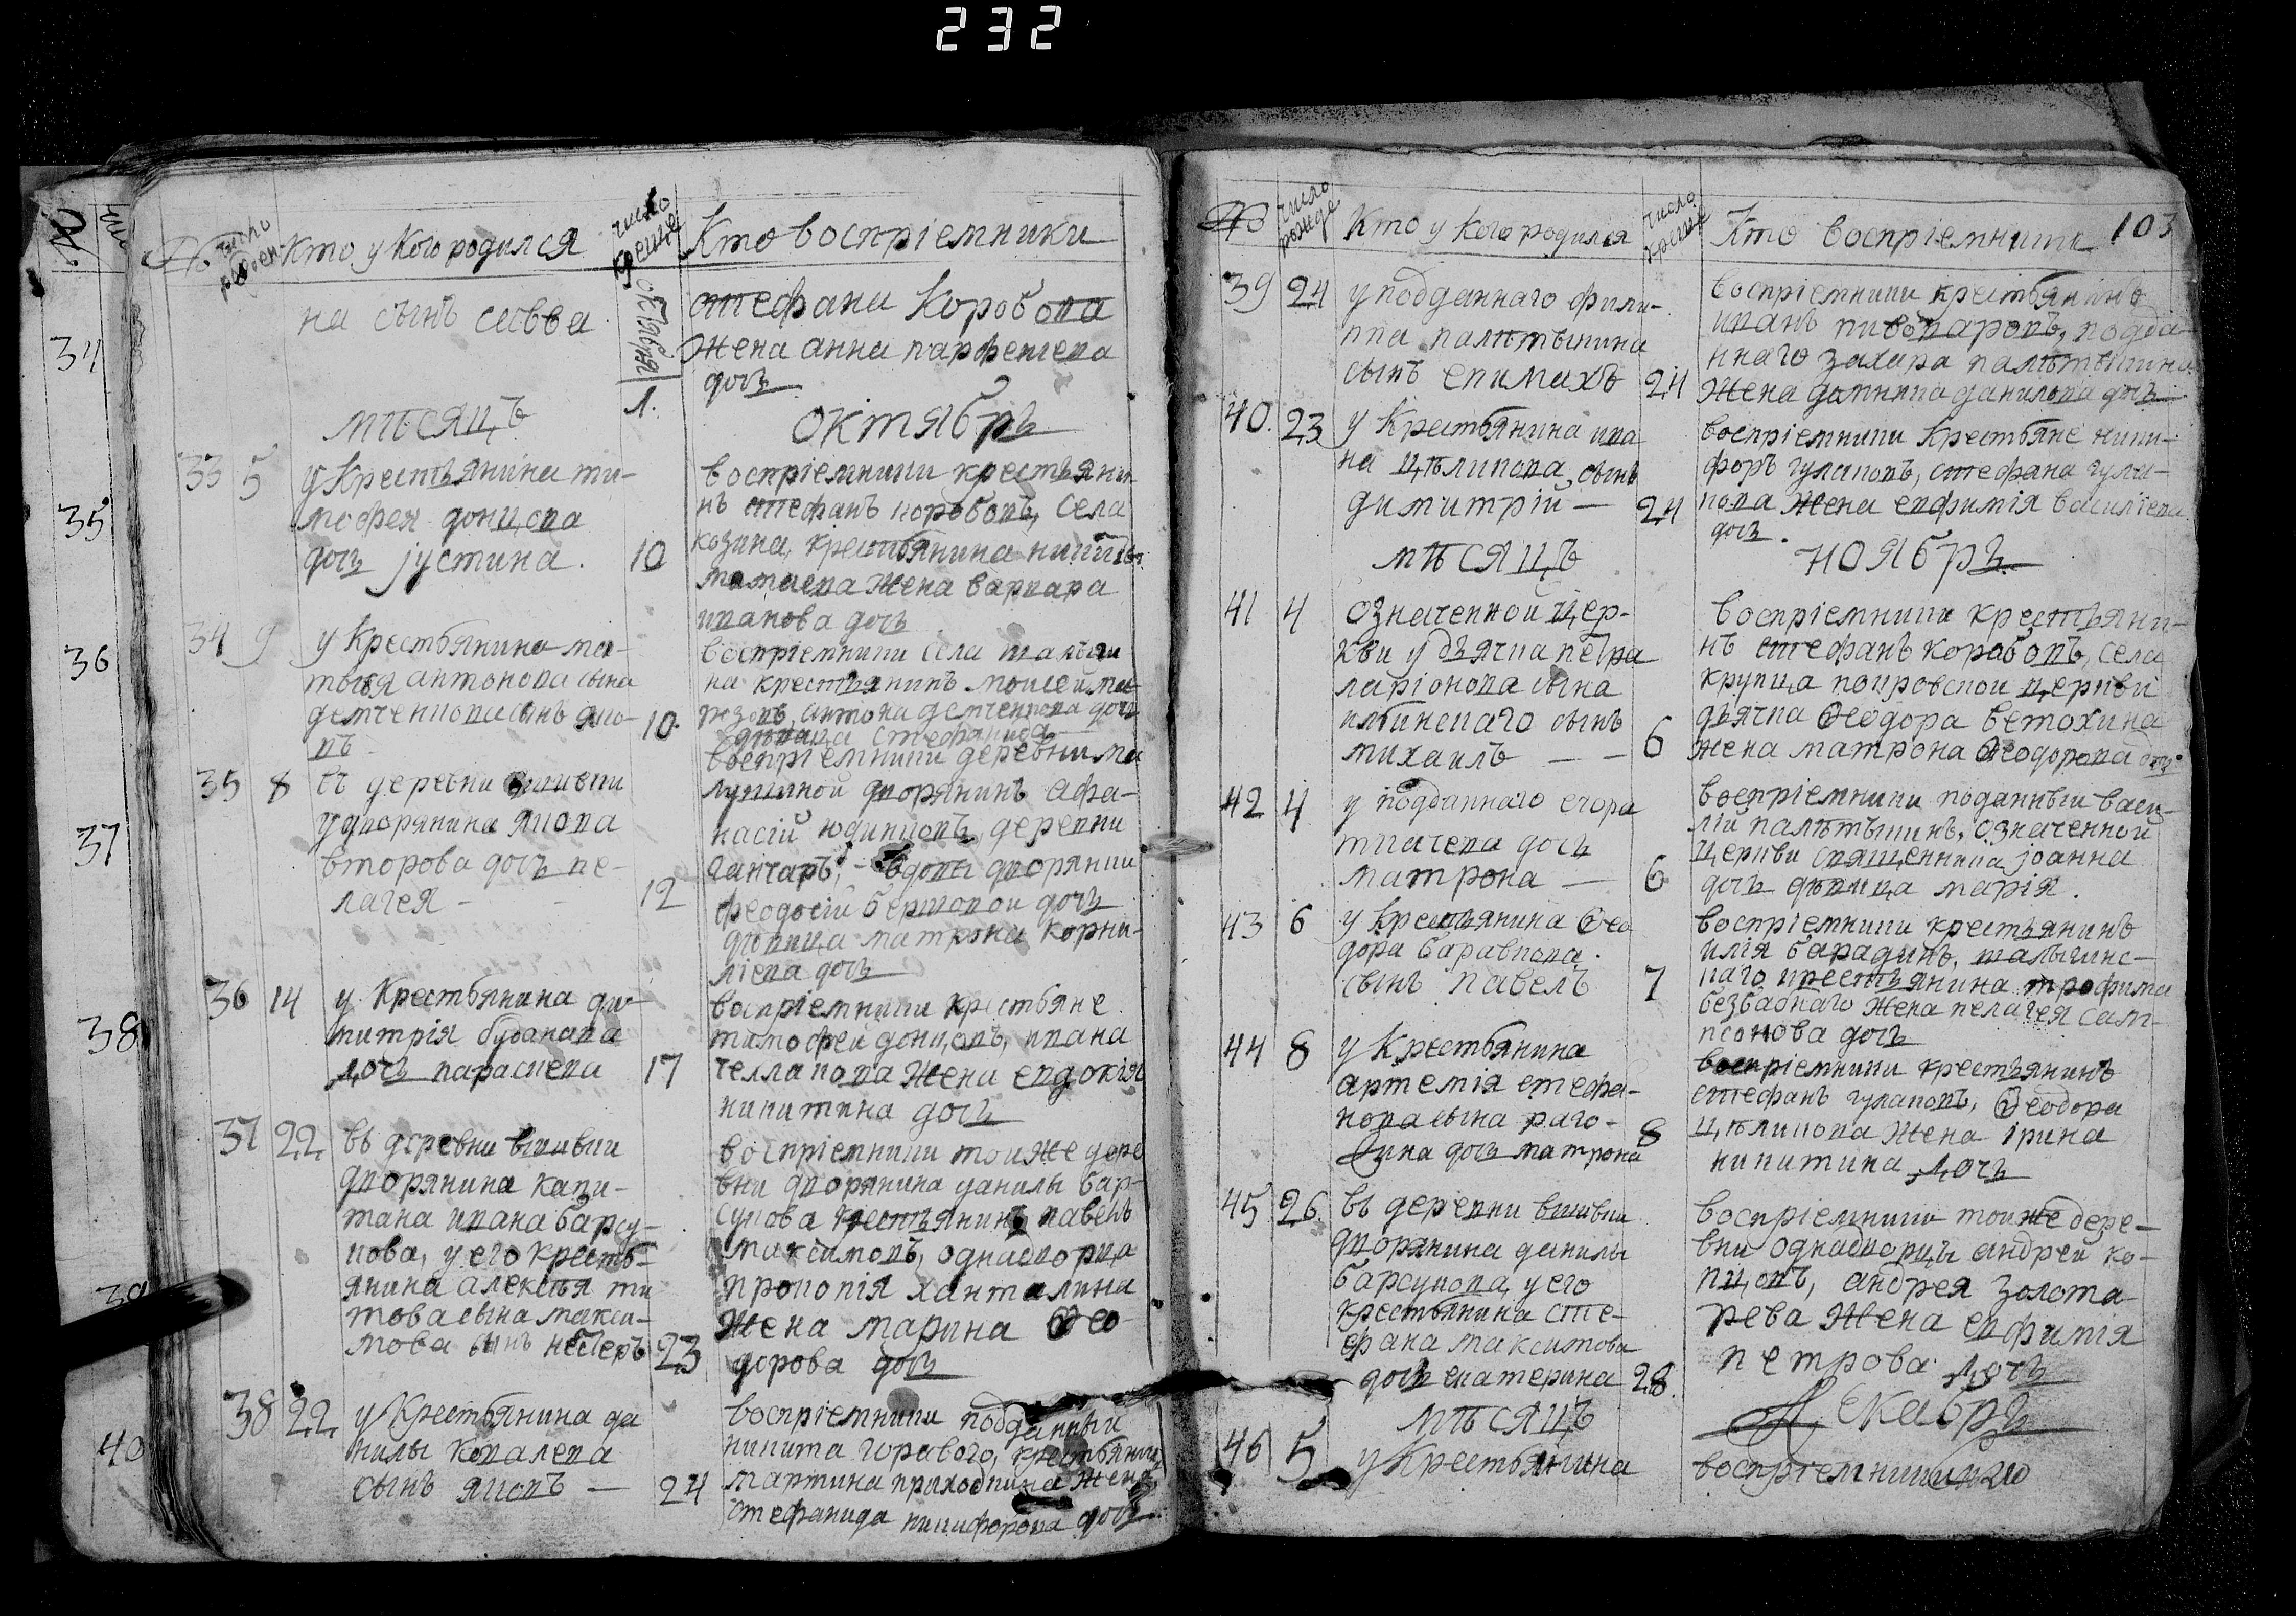 232
№ число рожден Кто у Кого родился число креще Кто восприемники
на сынъ савва
стефана Коробова
Жена анна парфентева
дочь
октября 1.
34
35
36
37
38
39
40
мѣсяцъ октябрь
33 5 у Крестьянина ти-
мофея донцова
дочь јустина. 10
восприемники крестьяни
нъ стефанъ коробовъ, села
козина, крестьянина
Жена варвара
иванова дочь
34 9 у Крестьянина ма-
твѣя антонова сына
демченкова сынъ яко-
въ 10.
восприемники села
на крестьянинъ моисей
антона демченкова дочь
дѣвица стефанида
35 8 въ деревни вшивки
у дворянина якова
второва дочь пе-
лагея - 12
восприемники деревни ма
лушиной дворянинъ афа-
насій юдинковъ, деревни
ганчаръ, вдовы дворянки
феодосіи бершовой дочь
дѣвица матрона корни-
ліева дочь
36 14 у Крестьянина ди-
митрія
дочь параскева 17
восприемники крестьяне
тимофей донцовъ, ивана
жена евдокія
никитина дочь
37 22 въ деревни вшивки
дворянина капи-
тана ивана барсу-
кова, у его кресть-
янина алексѣя ти
това сына макси-
мова сынъ несторъ 23
восприемники тоиже дере
вни дворянина данилы бар-
сукова крестьянинъ павелъ
максимовъ, однадворца
прокопія ханталина
жена марина Ѳео
дорова дочь
38 22 у Крестьянина да
нилы Ковалева
сынъ яковъ — 24
восприемники подданный
никита горового, крестьянина
мартина приходкина жена
стефанида никифорова дочь
№ число рожде Кто у Кого родился число креще Кто восприемники 103
39 24 у подданнаго фили-
ппа палѣтышина
сынъ епимахъ 24
восприемники крестьянинъ
иванъ пивоваровъ, подда-
ннаго захара палѣтышина
Жена домника данилова дочь
40. 23 у Крестьянина ива
на цѣликова сынъ
димитрій — 24
восприемники Крестьяне ники-
форъ гулаковъ, стефана гула-
кова Жена евфимія василіева
дочь.
мѣсяцъ ноябрь
41 4 означенной цер-
кви у дьячка петра
ларіонова сына
илбинскаго сынъ
михаилъ — — 6
восприемники крестьяни-
нъ стефанъ коробовъ, села
крупца покровской церкви
дьячка Ѳеодора ветохина
жена матрона Ѳеодорова дочь
42 4 у подданнаго егора
ткачева дочь
матрона — 6
восприемники поданный васи-
лій палѣтышинъ, означенной
церкви священника јоанна
дочь дѣвица марія.
43 6 у крестьянина Ѳео
дора баравкова.
сынъ павелъ 7
восприемники крестьянинъ
илія барадинъ, шалыгинс-
каго крестьянина трофима
безбаднаго Жена пелагея сам-
псонова дочь
44 8 у Крестьянина
артемія стефа-
нова сына раго-
зина дочь матрона 8
восприемники крестьянинъ
стефанъ гулаковъ, Ѳеодора
цѣликова Жена ірина
никитина дочь
45 26 въ деревни вшивки
дворянина данилы
барсукова, у его
крестьянина сте-
фана максимова
дочь екатерина 28.
восприемники тоиже дере-
вни однадворцы андрей ко-
пцовъ, андрея золота-
рева Жена евфимія
петрова дочь
мѣсяцъ Декабрь
46 5 у Крестьянина
восприемники